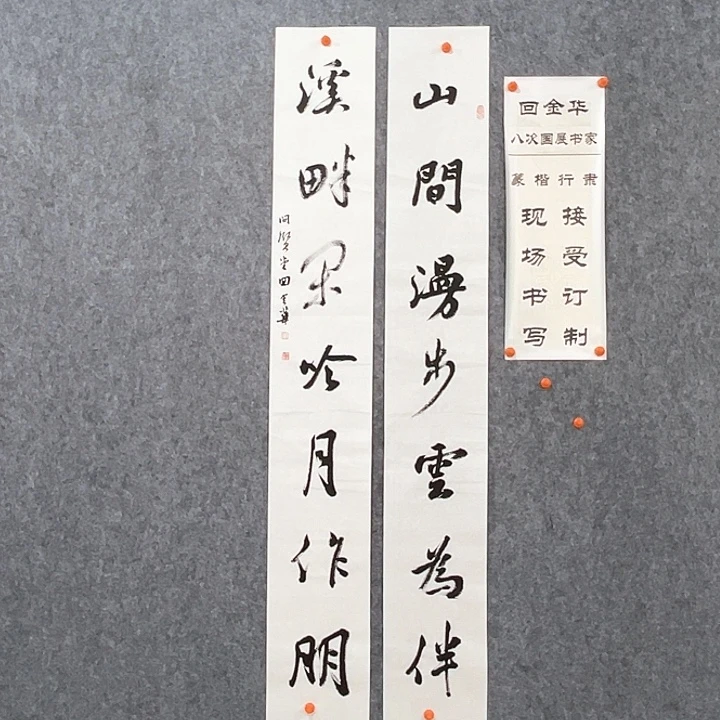 山間漫步雲為伴
溪畔閑吟月作朋
回金華
回金华
八次国展书家
篆楷行隶
现场书写
接受订制